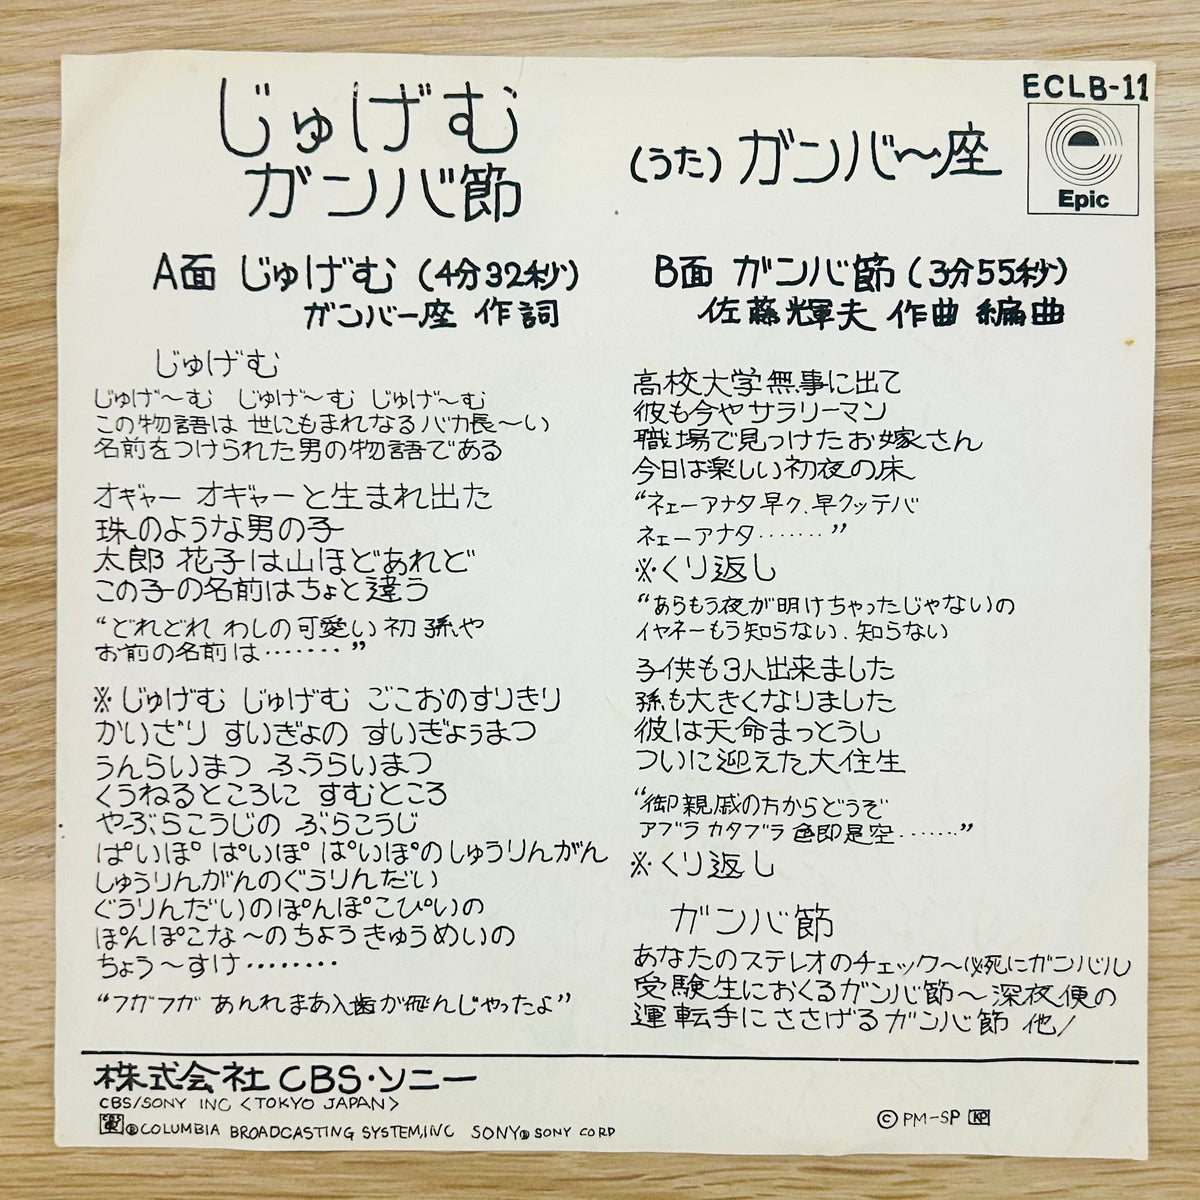 じゅげむ
ガンバ節
(うた) ガンバ〜座
ECLB-11
Epic
A面 じゅげむ (4分32秒)
ガンバー座 作詞
B面 ガンバ節 (3分55秒)
佐藤輝夫 作曲 編曲
じゅげむ
じゅげ〜む じゅげ〜む じゅげ〜む
この物語は 世にもまれなるバカ長〜い
名前をつけられた男の物語である
オギャー オギャーと生まれ出た
珠のような男の子
太郎 花子は山ほどあれど
この子の名前はちょと違う
“どれどれ わしの可愛い初孫や
お前の名前は‥‥‥‥”
※じゅげむ じゅげむ ごこおのすりきり
かいざり すいぎょの すいぎょうまつ
うんらいまつ ふうらいまつ
くうねるところに すむところ
やぶらこうじの ぶらこうじ
ぱいぽ ぱいぽ ぱいぽのしゅうりんがん
しゅうりんがんのぐうりんだい
ぐうりんだいのぽんぽこぴいの
ぽんぽこな〜のちょうきゅうめいの
ちょう〜すけ‥‥‥‥
“フガフガ あんれまあ入歯が飛んじゃったよ”
高校大学無事に出て
彼も今やサラリーマン
職場で見つけたお嫁さん
今日は楽しい初夜の床
“ネェーアナタ早ク、早クッテバ
ネェーアナタ‥‥‥‥”
※くり返し
“あらもう夜が明けちゃったじゃないの
イヤネーもう知らない、知らない
子供も3人出来ました
孫も大きくなりました
彼は天命まっとうし
ついに迎えた大住生
“御親戚の方からどうぞ
アブラカタブラ色即是空‥‥‥”
※くり返し
ガンバ節
あなたのステレオのチェック〜必死にガンバル
受験生におくるガンバ節〜深夜便の
運転手にささげるガンバ節 他!
株式会社CBS・ソニー
CBS/SONY INC <TOKYO JAPAN>
®COLUMBIA BROADCASTING SYSTEM,INC SONY® SONY CORP
© PM-SP